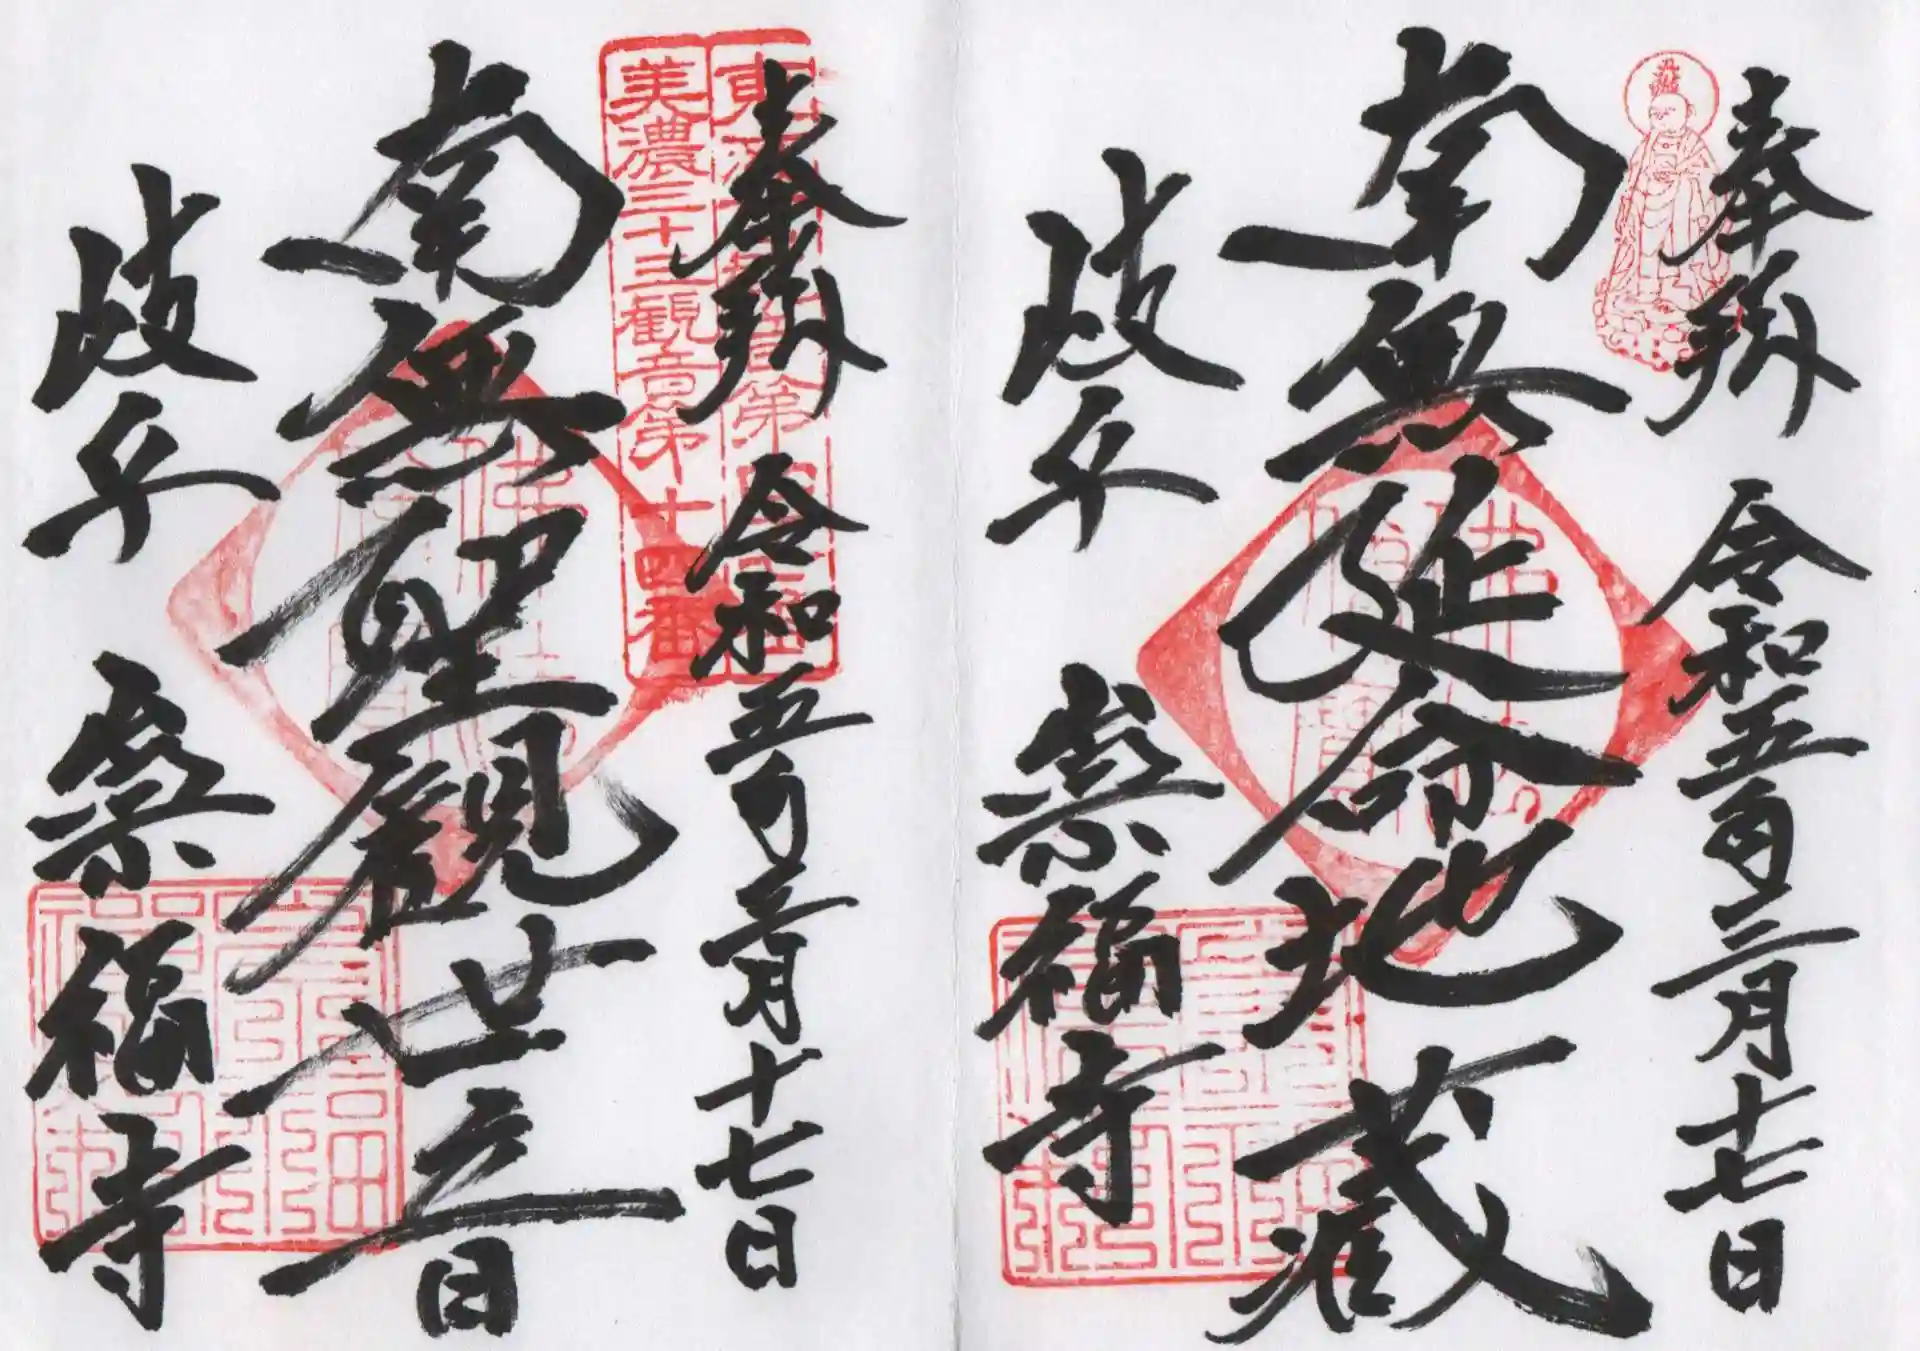 奉拜
令和五年三月十七日
南無延命地蔵
岐阜
崇福寺
奉拜
令和五年三月十七日
美濃三十三観音第十四番
南無聖觀世音
岐阜
崇福寺